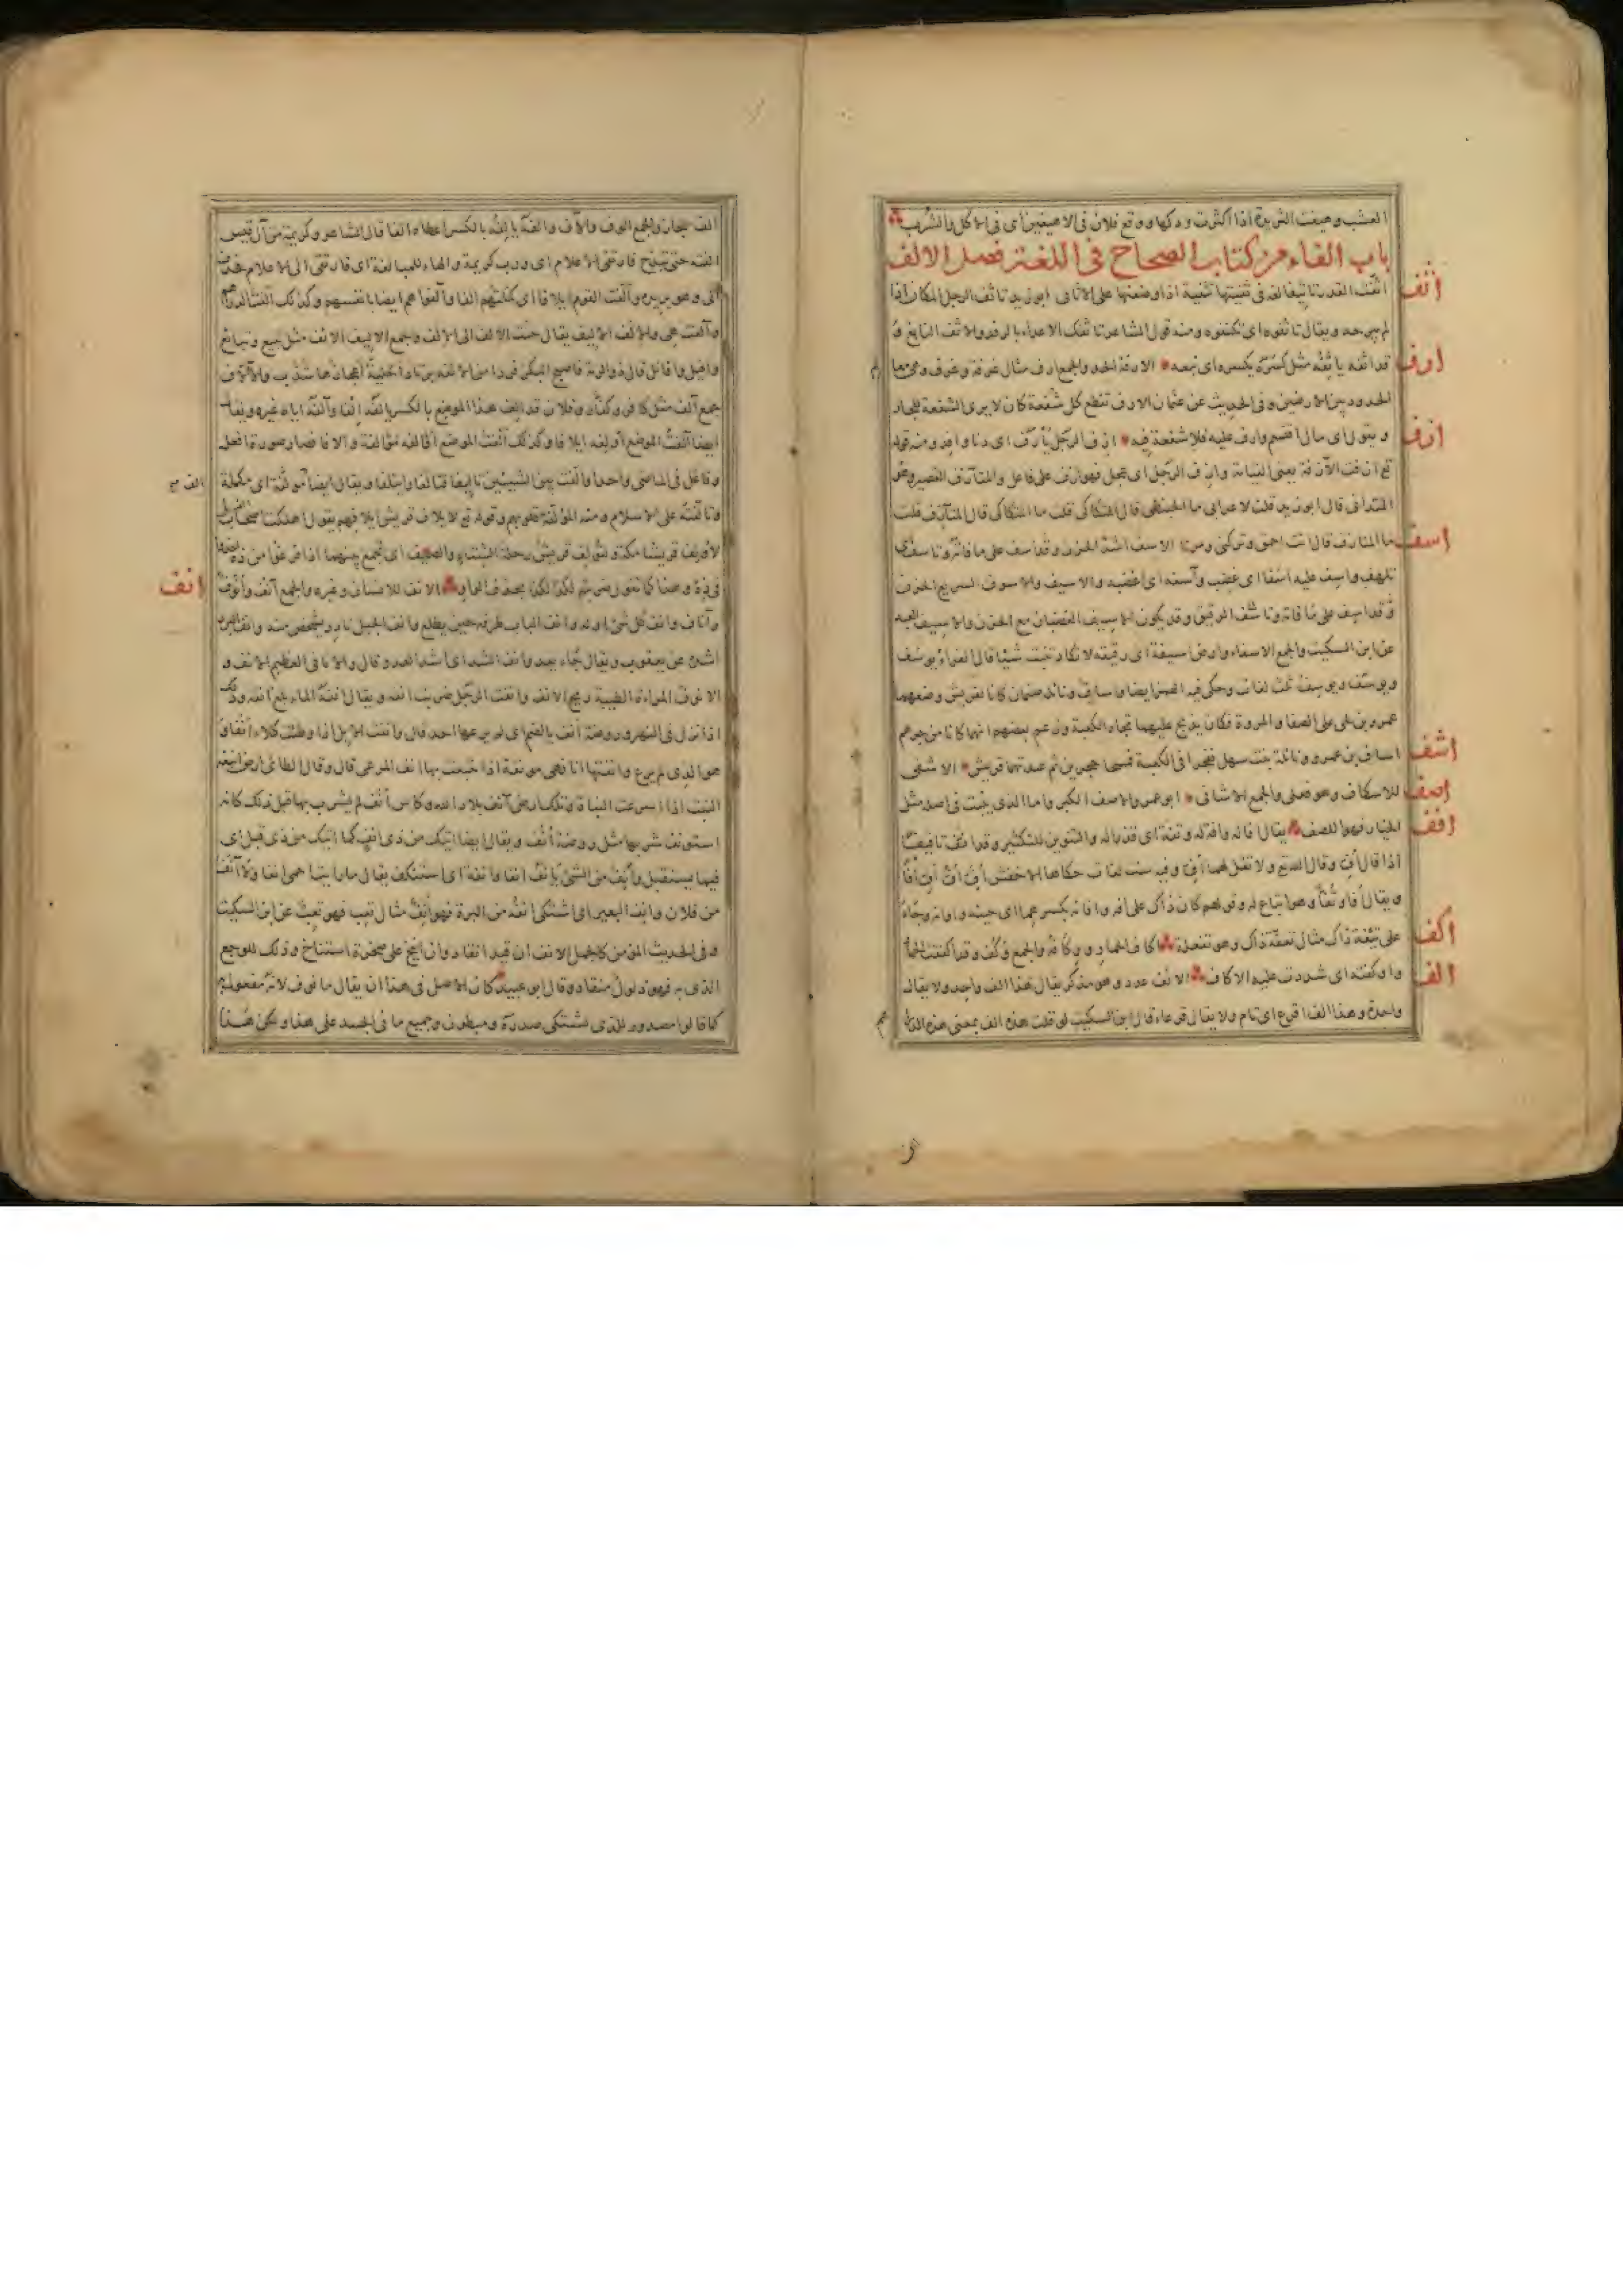 العشب وهيغت الثريدة اذا اكثرت ودكها ووقع فلان فى الاهيغين اى فى الاكل والشرب
باب الفاء من كتاب الصحاح فى اللغة فصل الالف
اثف
اثفت القدر تاثيفا لغة فى ثفيتها تثفية اذا وضعتها على الاثافى ابو زيد تاثف الرجل المكان اذا
لم يبرحه ويقال تاثفوه اى تكنفوه ومنه قول الشاعر تاثفك الاعداء بالرفد والاثف التابع و
ارف
قد اثفه ياثفه مثل كسره يكسره اى تبعه الارفة الحد والجمع ارف مثال غرفة وغرف وهى معا
الحدود بين الارضين وفى الحديث عن عثمان الارف تقطع كل شفعة كان لا يرى الشفعة للجار
ازف
و يقول اى مال اقتسم وارف عليه فلا شفعة فيه ازف الرحيل يازف ازفا اى دنا وافد ومنه قوله
تع ازفت الآزفة يعنى القيامة وازف الرجل اى عجل فهو ازف على فاعل والمتآزف القصير وهو
المتدانى قال ابو زيد قلت لاعرابى ما المحبنطى قال المتكاكى قلت ما المتكاكى قال المتآزف قلت
اسف
ما المتازف قال انت احمق وتركنى ومر الاسف اشد الحزن وقد اسف على ما فاته وتاسف اى
تلهف واسف عليه اسفا اى غضب وآسفه اى اغضبه والاسيف والاسوف السريع الحزن
وقد اسف على ما فاته وتاسف الرقيق وقد يكون الاسيف الغضبان مع الحزن والاسيف العبد
عن ابن السكيت والجمع الاسفاء وارض اسيفة اى رقيقة لا تكاد تنبت شيئا قال الفراء يوسف
ويوسف ويوسف ثلث لغات وحكى فيه الهمز ايضا واساف ونائلة صنمان كانا لقريش وضعهما
عمرو بن لحى على الصفا والمروة فكان يذبح عليهما تجاه الكعبة وزعم بعضهم انهما كانا من جرهم
اشف
اساف بن عمرو ونائلة بنت سهل ففجرا فى الكعبة فمسخا حجرين ثم عبدتهما قريش الاشفى
اصف
للاسكاف وهو فعلى والجمع الاشافى ابو عمرو الاصف الكبر واما الذى ينبت فى اصله مثل
افف
الخيار فهو اللصف يقال افا له وافة له وتفة اى قذرا له والتنوين للتكثير وقد افف تافيفا
اذا قال اف وقال الله تع ولا تقل لهما اف وفيه ست لغات حكاها الاخفش اف اف اف افا
ويقال افا وتفا وهو اتباع له وقولهم كان ذاك على اف وافانه بكسرهما اى حينه واوانه وجاء
اكف
على تئفة ذاك مثال تعفة ذاك وهو تفعلة اكاف الحمار ووكافه والجمع اكف وقد اكفت الحمار
الف
واوكفته اى شددت عليه الاكاف الالف عدد وهو مذكر يقال هذا الف واحد ولا يقال
واحدة وهذا الف اقرع اى تام ولا يقال قرعاء قال ابن السكيت لو قلت هذه الف بمعنى هذه الدراهم
الف لجاز والجمع الوف والآف والفه يالفه بالكسر اعطاه الفا قال الشاعر وكريمة من آل قيس
الفته حتى تبذخ فارتقى الاعلام اى ورب كريمة والهاء للمبالغة اى فارتقى الى الاعلام فحذف
الى وهو يريده وآلفت القوم ايلافا اى كملتهم الفا وآلفوا هم ايضا بانفسهم وكذلك آلفت الدراهم
وآلفت هى والالف الاليف يقال حنت الالف الى الالف وجمع الاليف الائف مثل تبيع وتبائع
وافيل وافائل قال ذو الرمة فاصبح البكر فردا من الائفه يرتاد احلية اعجازها شذب والالاف
جمع آلف مثل كافر وكفار وفلان قد الف هذا الموضع بالكسر يالفه الفا وآلفه اياه غيره ويقال
ايضا آلفت الموضع اولفه ايلافا وكذلك آلفت الموضع اوالفه مؤالفة والافا فصار صورة افعل
وفاعل فى الماضى واحدا والفت بين الشيئين تاليفا فتالفا وائتلفا ويقال ايضا الف مولفة اى مكملة
وتالفته على الاسلام ومنه المؤلفة قلوبهم وقوله تع لايلاف قريش ايلافهم يقول اهلكت اصحاب الفيل
لاولف قريشا مكة ولتولف قريش رحلة الشتاء والصيف اى تجمع بينهما اذا فرغوا من ذه اخذوا
انف
فى ذه وهذا كما تقول ضربته لكذا لكذا بحذف الواو الانف للانسان وغيره والجمع آنف وانوف
وآناف وانف كل شئ اوله وانف الناب طرفه حين يطلع وانف الجبل نادر يشخص منه وانف البرد
اشده عن يعقوب ويقال جاء يعدو انف الشد اى اشد العدو قال والانافى العظيم الانف و
الانوف المراة الطيبة ريح الانف وانفت الرجل ضربت انفه ويقال انفه الماء بلغ انفه وذلك
اذا نزل فى النهر وروضة انف بالضم اى لم يرعها احد قال وانفت الابل اذا وطئت كلاء انفا
هو الذى لم يرع وانفتها انا فهى مونفة اذا تتبعت بها انف المرعى قال وقال الطائى ارض انيفة
النبت اذا اسرعت النبات وتلك ارض آنف بلاد الله وكاس انف لم يشرب بها قبل ذلك كانه
استونف شربها مثل روضة انف ويقال ايضا اتيتك من ذى انف كما اتيتك من ذى قبل اى
فيما يستقبل وانف من الشئ يانف انفا وانفة اى استنكف يقال ما رايت احمى انفا ولا آنف
من فلان وانف البعير اى اشتكى انفه من البرة فهو انف مثال تعب فهو تعب عن ابن السكيت
وفى الحديث المؤمن كالجمل الانف ان قيد انقاد وان انيخ على صخرة استناخ وذلك للوجع
الذى به فهو ذلول منقاد وقال ابو عبيد كان الاصل فى هذا ان يقال مانوف لانه مفعول به
كما قالوا مصدور للذى يشتكى صدره ومبطون وجميع ما فى الجسد على هذا ولكن هذا